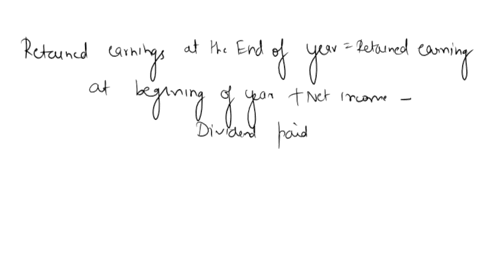 Retained earnings at the End of year = Retained earning
at begining of year + Net income -
Dividend paid